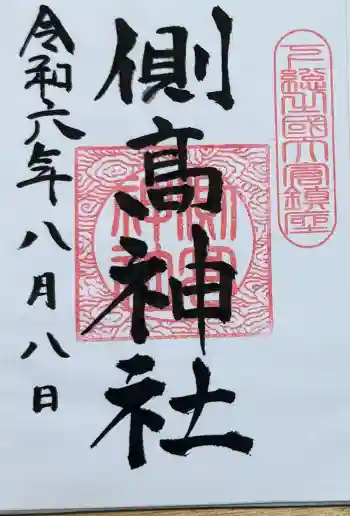 下總國大倉鎮座
側高神社
側高
神社
令和六年八月八日